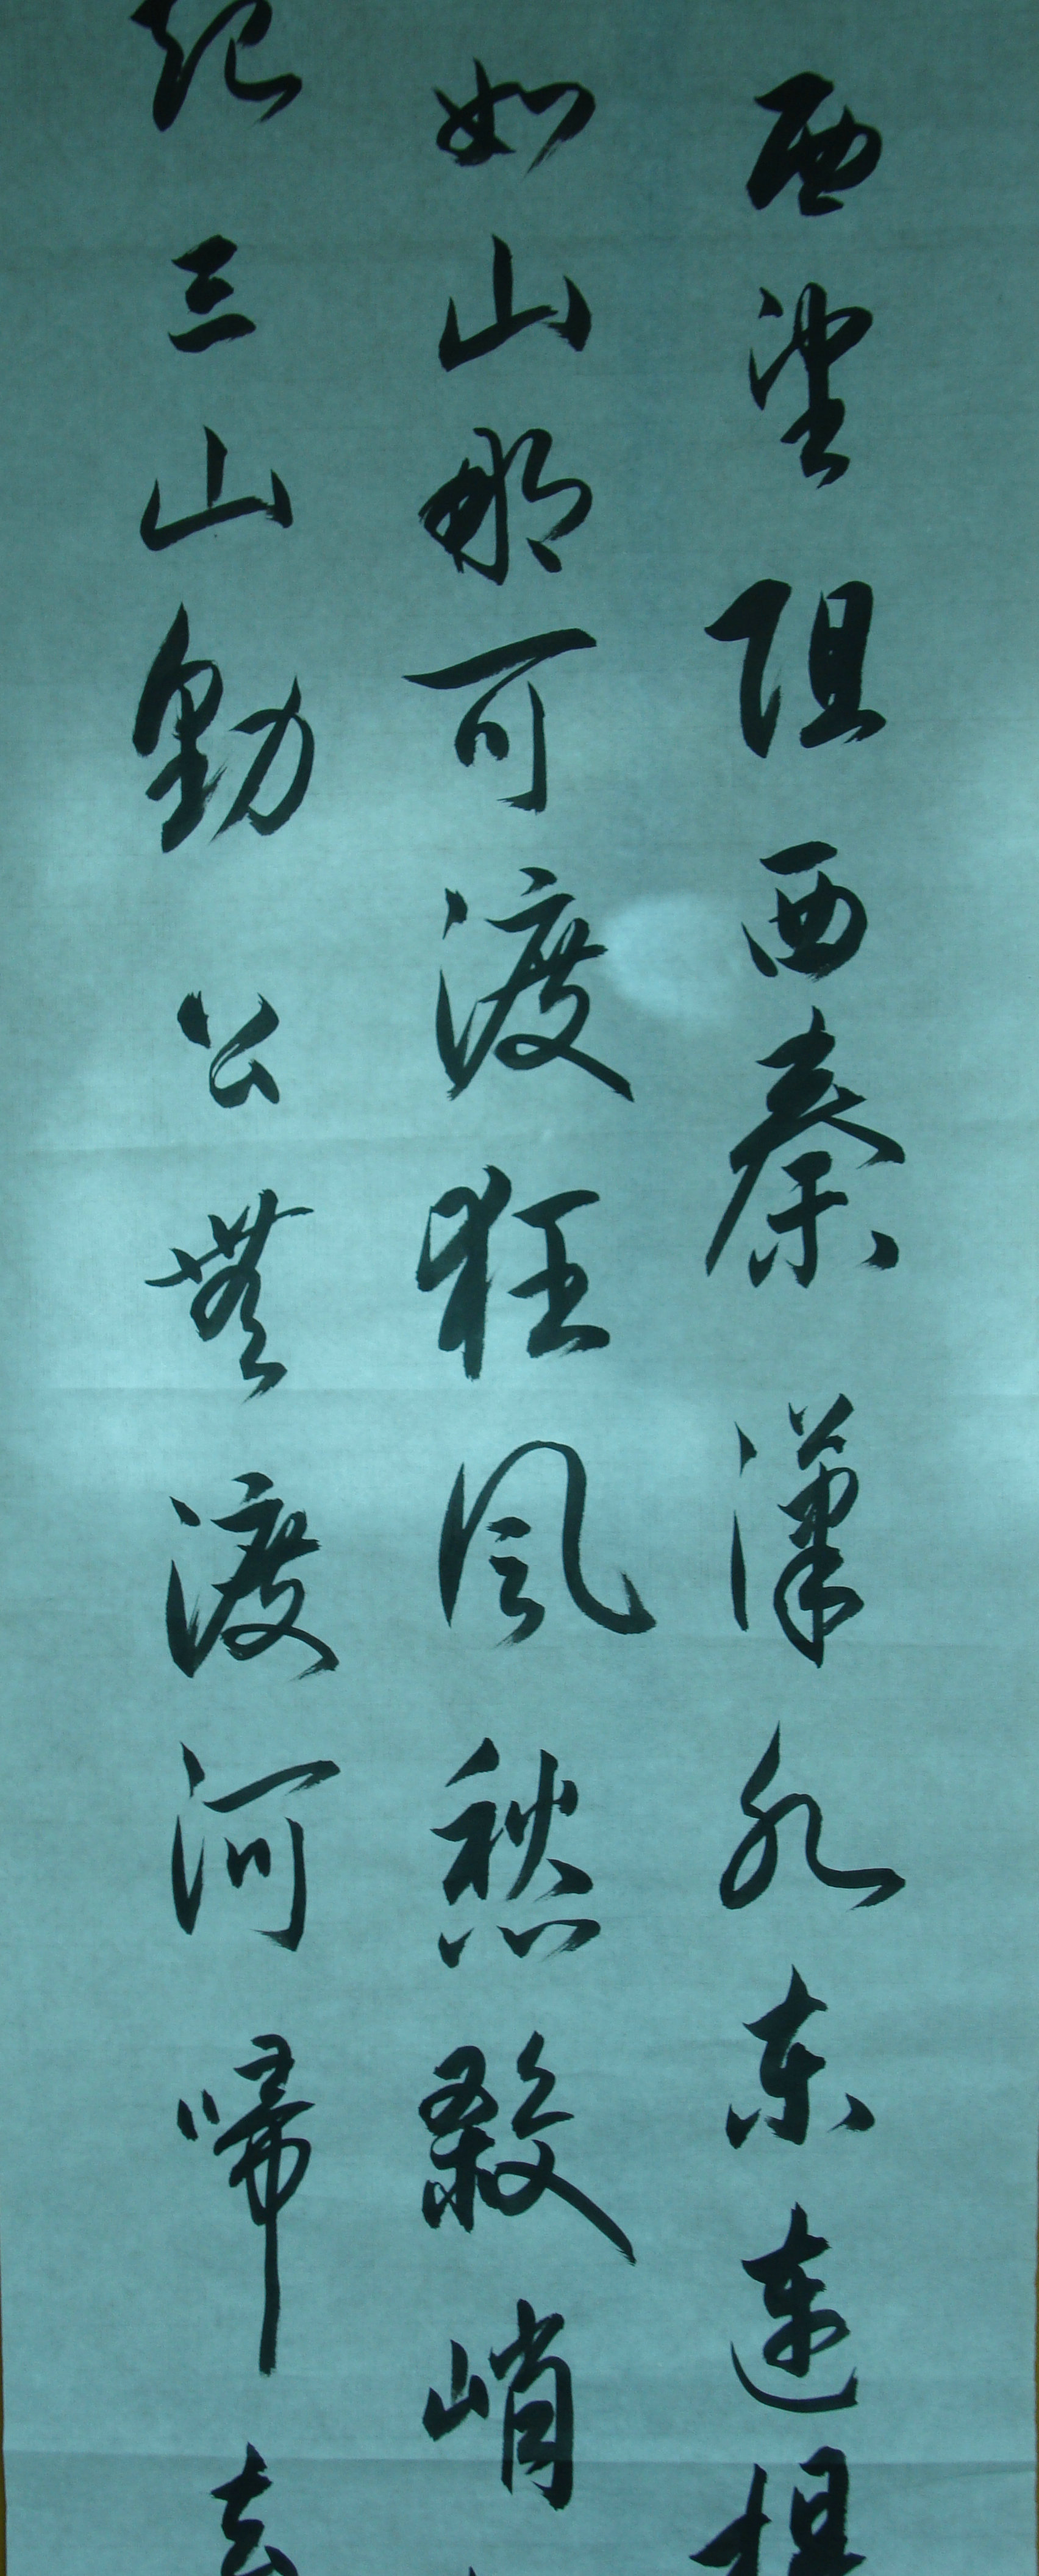 西望阻西秦漢水東連
如山那可渡狂風愁殺峭
起三山動公無渡河歸去